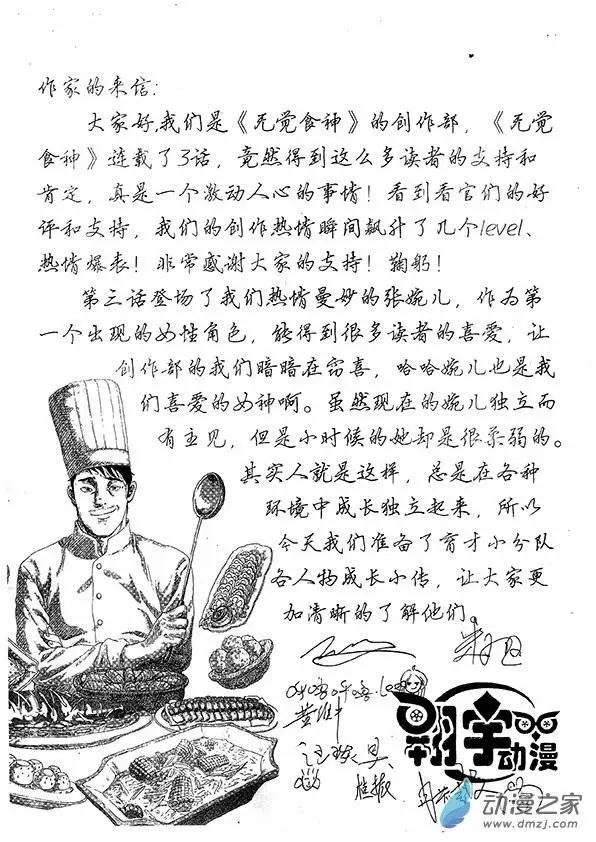 作家的来信:
大家好,我们是《无觉食神》的创作部,《无觉
食神》连载了3话,竟然得到这么多读者的支持和
肯定,真是一个激动人心的事情!看到看官们的好
评和支持,我们的创作热情瞬间飙升了几个level、
热情爆表!非常感谢大家的支持!鞠躬!
第三话登场了我们热情曼妙的张婉儿,作为第
一个出现的女性角色,能得到很多读者的喜爱,让
创作部的我们暗暗在窃喜,哈哈婉儿也是我
们喜爱的女神啊。虽然现在的婉儿独立而
有主见,但是小时候的她却是很柔弱的。
其实人就是这样,总是在各种
环境中成长独立起来,所以
今天我们准备了育才小分队
各人物成长小传,让大家更
加清晰的了解他们。
翱宇动漫
动漫之家
www.dmzj.com